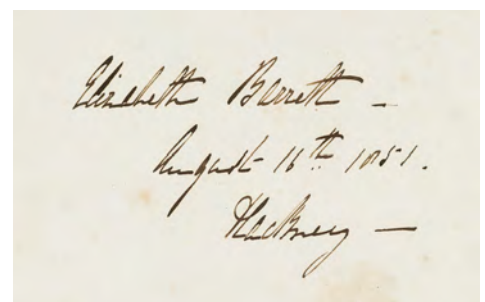 Elizabeth Barrett –
August 16th 1851.
Hackney —